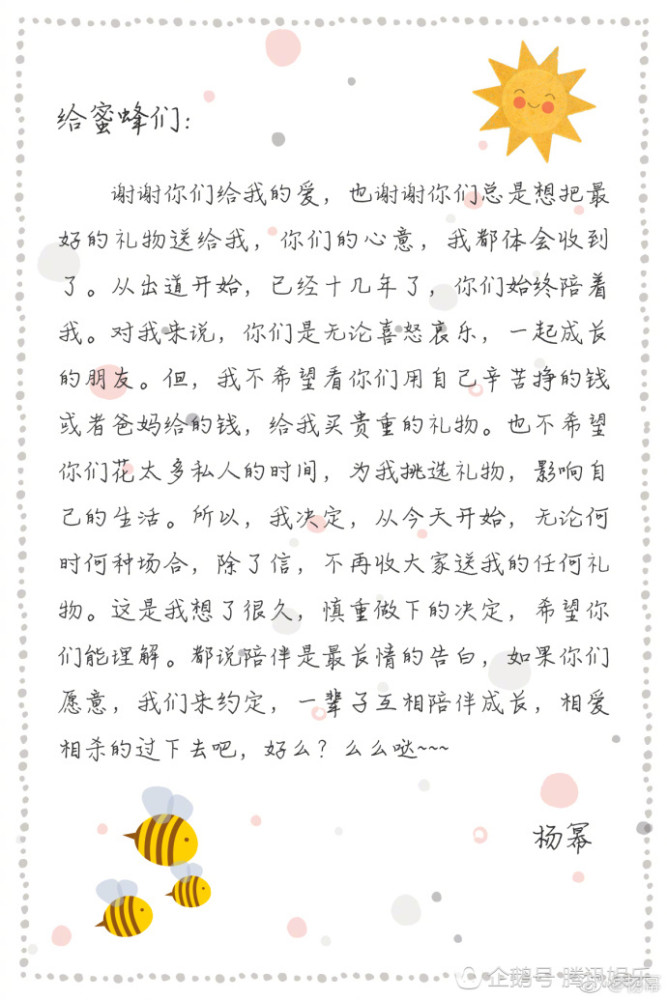 给蜜蜂们：
谢谢你们给我的爱，也谢谢你们总是想把最
好的礼物送给我，你们的心意，我都体会收到
了。从出道开始，已经十几年了，你们始终陪着
我。对我来说，你们是无论喜怒哀乐，一起成长
的朋友。但，我不希望看你们用自己辛苦挣的钱
或者爸妈给的钱，给我买贵重的礼物。也不希望
你们花太多私人的时间，为我挑选礼物，影响自
己的生活。所以，我决定，从今天开始，无论何
时何种场合，除了信，不再收大家送我的任何礼
物。这是我想了很久，慎重做下的决定，希望你
们能理解。都说陪伴是最长情的告白，如果你们
愿意，我们来约定，一辈子互相陪伴成长，相爱
相杀的过下去吧，好么？么么哒~~~
杨幂
企鹅号 腾讯娱乐